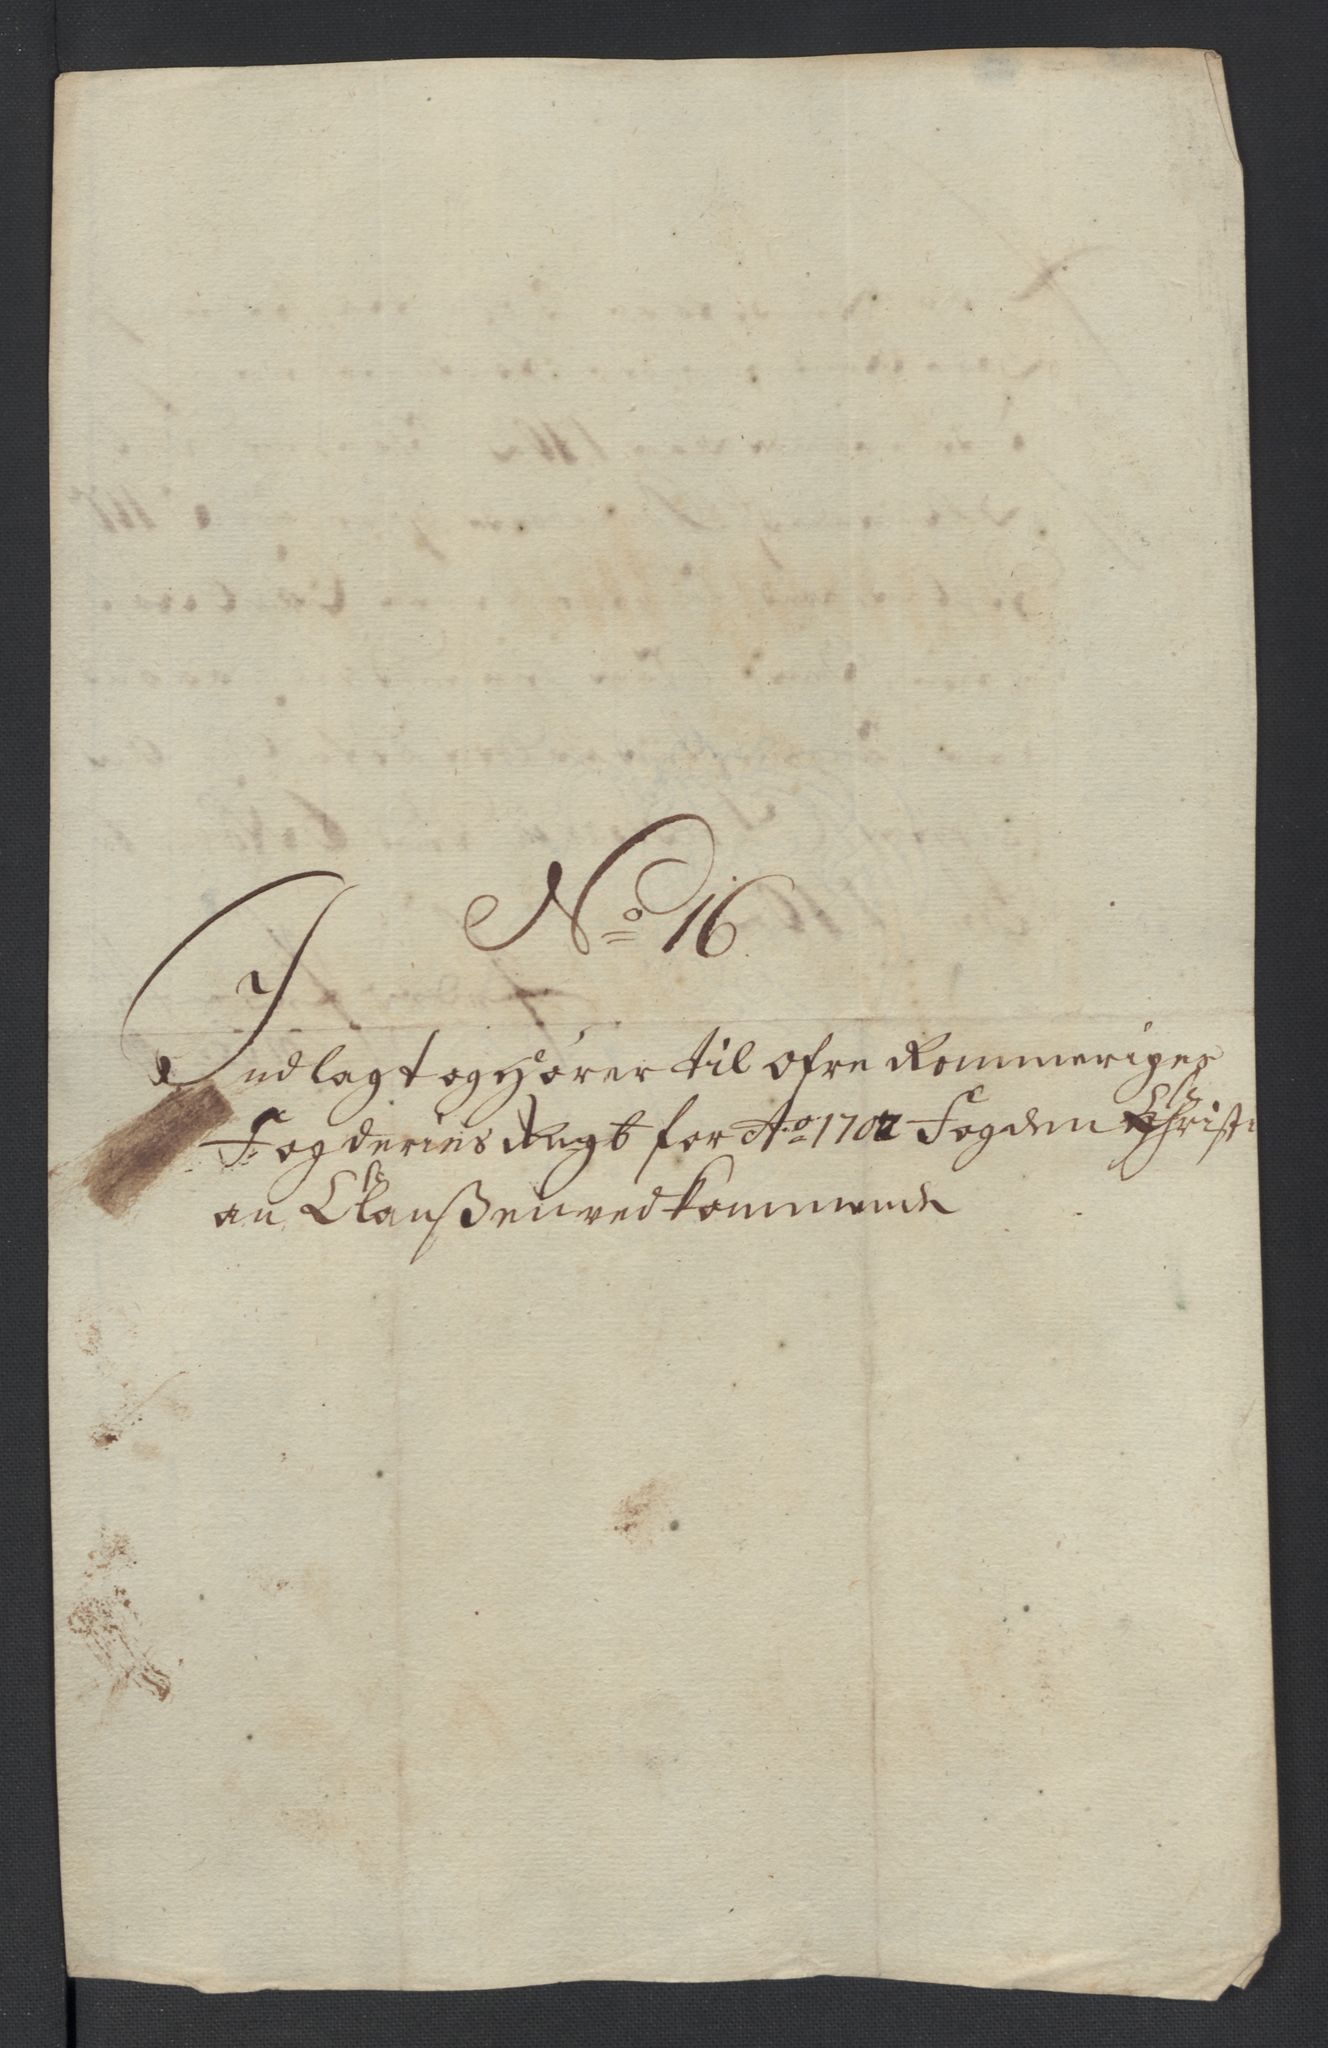 No 16
Indlagt og Hörer til ofre Rommeriges
Fogderies Regb for Ao 1702 Fogden Christi
an Claußen ved kommende